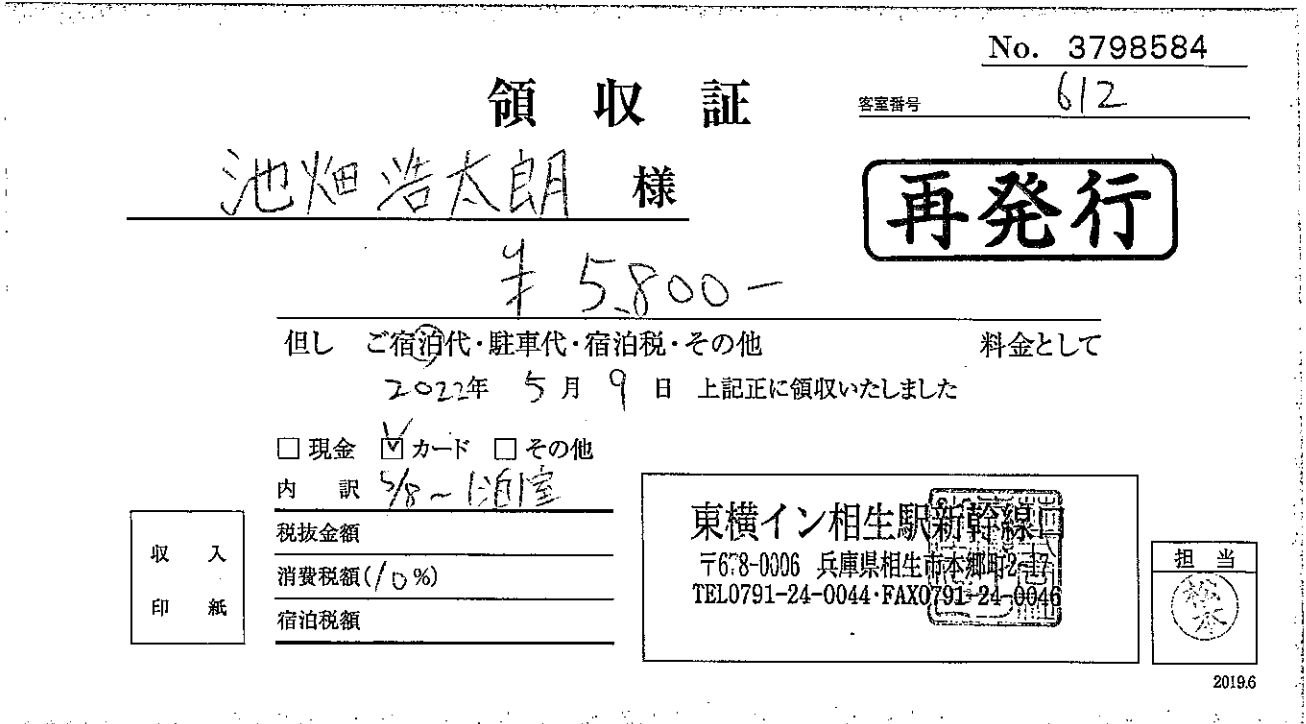 No. 3798584
領収証
客室番号 612
池畑浩太朗 様
再発行
¥5,800-
但し ご宿泊代・駐車代・宿泊税・その他 料金として
2022年 5月 9日 上記正に領収いたしました
□現金 ☑カード □その他
内訳 5/8~1泊1室
税抜金額
消費税額(10%)
宿泊税額
収入
印紙
東横イン相生駅新幹線口
〒678-0006 兵庫県相生市本郷町2-17
TEL0791-24-0044・FAX0791-24-0046
担当
松本
2019.6